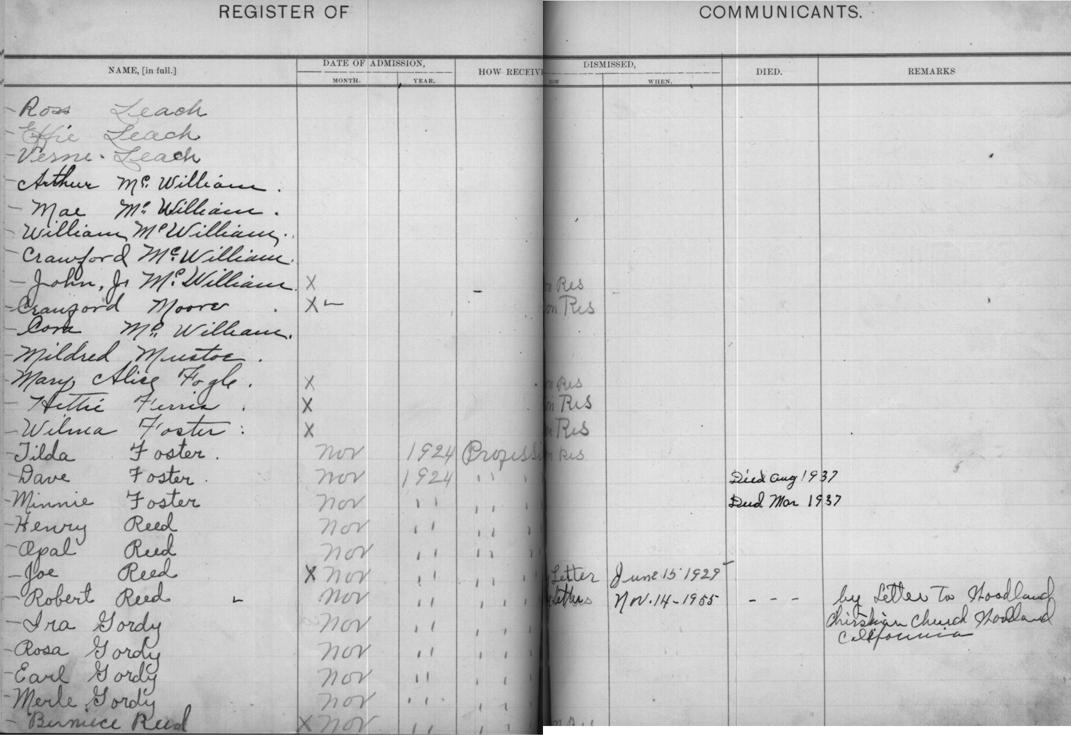 REGISTER OF COMMUNICANTS.
NAME, [in full.] DATE OF ADMISSION, HOW RECEIV DISMISSED, DIED. REMARKS
MONTH. YEAR. WHEN.
- Ross Leach
- Effie Leach
- Verne Leach
- Arthur Mc William.
- Mae Mc William.
- William Mc William.
- Crawford Mc William.
- John, Jr Mc William. X - n Res
- Crawford Moore. X on Res
- Cora Mc William.
- Mildred Mustoe.
- Mary Alice Fogle. X n Res
- Hettie Ferris. X on Res
- Wilma Foster. X n Res
- Tilda Foster. Nov 1924 Professi n Res
- Dave Foster. Nov 1924 " " Died Aug 1937
- Minnie Foster Nov " " " " Died Mar 1937
- Henry Reed Nov " " " "
- Opal Reed Nov " " " "
- Joe Reed X Nov " " " " Letter June 15 1929
- Robert Reed Nov " " " " Letters Nov. 14-1955 - - - by Letter to Woodland
- Ira Gordy Nov " " " " Christian Church Woodland
California
- Rosa Gordy Nov " " " "
- Earl Gordy Nov " " " "
- Merle Gordy Nov " " " "
- Bernice Reed X Nov " " " "